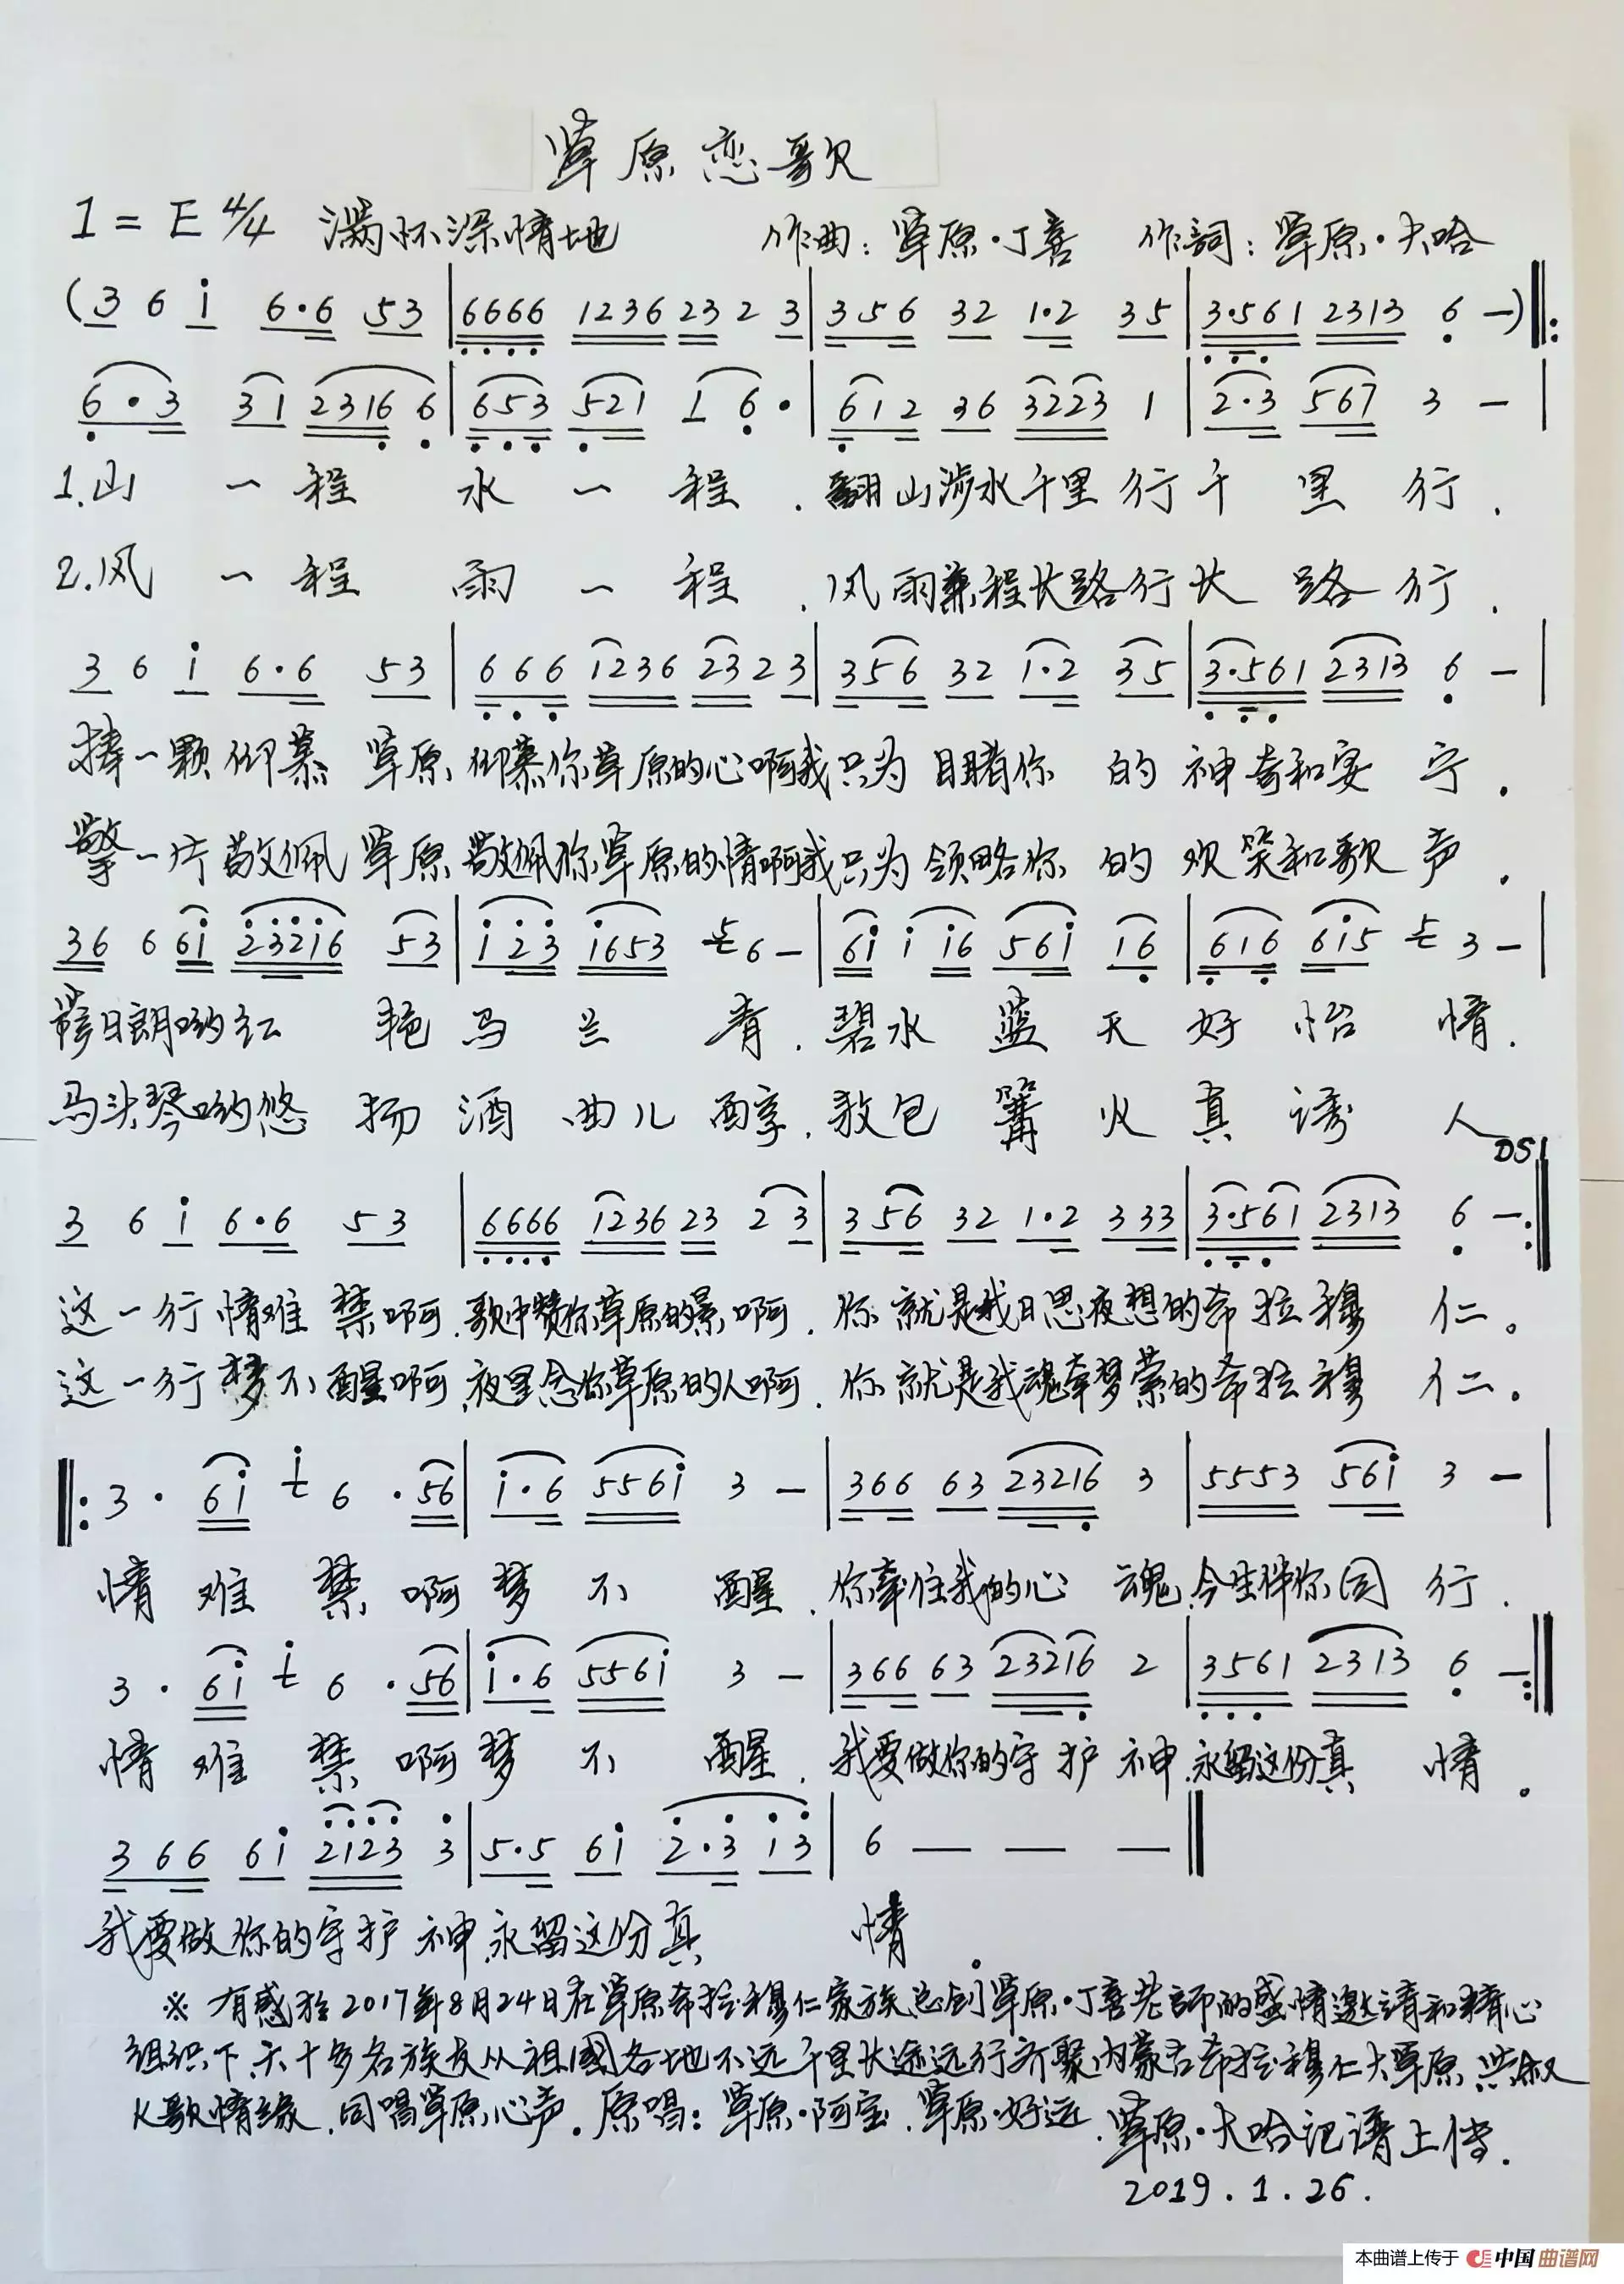 草原恋歌
1=E 4/4 满怀深情地 作曲:草原·丁喜 作詞:草原·大哈
(3 6 i 6·6 53 | 6666 1236 23 2 3 | 356 32 1·2 35 | 3·561 2313 6 —) ‖:
6·3 31 2316 6 | 653 521 1 6· | 612 36 3223 1 | 2·3 567 3 — |
1.山一程水一程.翻山涉水千里行千里行.
2.风一程雨一程.风雨兼程长路行长路行.
3 6 i 6·6 53 | 666 1236 23 2 3 | 356 32 1·2 35 | 3·561 2313 6 — |
捧一颗仰慕草原仰慕你草原的心啊我只为目睹你的神奇和安宁.
擎一片敬佩草原敬佩你草原的情啊我只为领略你的欢笑和歌声.
36 6 6i 232i6 53 | i23 i653 5 6 — | 6i i i6 56i 16 | 616 6i5 5 3 — |
日朗哟红艳马兰青.碧水蓝天好怡情.
马头琴哟悠扬酒曲儿醇.敖包篝火真诱人
DS1
3 6 i 6·6 53 | 6666 1236 23 2 3 | 356 32 1·2 333 | 3·561 2313 6 — :‖
这一行情难禁啊.歌中赞你草原的景啊.你就是我日思夜想的希拉穆仁。
这一行梦不醒啊.夜里念你草原的人啊.你就是我魂牵梦萦的希拉穆仁。
‖: 3· 6i i 6 ·56 | i·6 556i 3 — | 366 63 23216 3 | 5553 56i 3 — |
情难禁啊梦不醒.你牵住我的心魂.今生伴你同行.
3· 6i i 6 ·56 | i·6 556i 3 — | 366 63 23216 2 | 3561 2313 6 — :‖
情难禁啊梦不醒.我要做你的守护神.永留这份真情.
3 66 6i 2123 3 | 5·5 6i 2·3 i3 | 6 — — — ‖
我要做你的守护神.永留这份真情.
※有感於2017年8月24日在草原希拉穆仁家族总剑草原·丁喜老師的盛情邀请和精心
组织下.六十多名族友从祖國各地不远千里长途远行齐聚内蒙古希拉穆仁大草原.共叙
K歌情缘.同唱草原心声.原唱:草原·阿宝.草原·好远.草原·大哈记谱上传.
2019.1.26.
本曲谱上传于 中国曲谱网